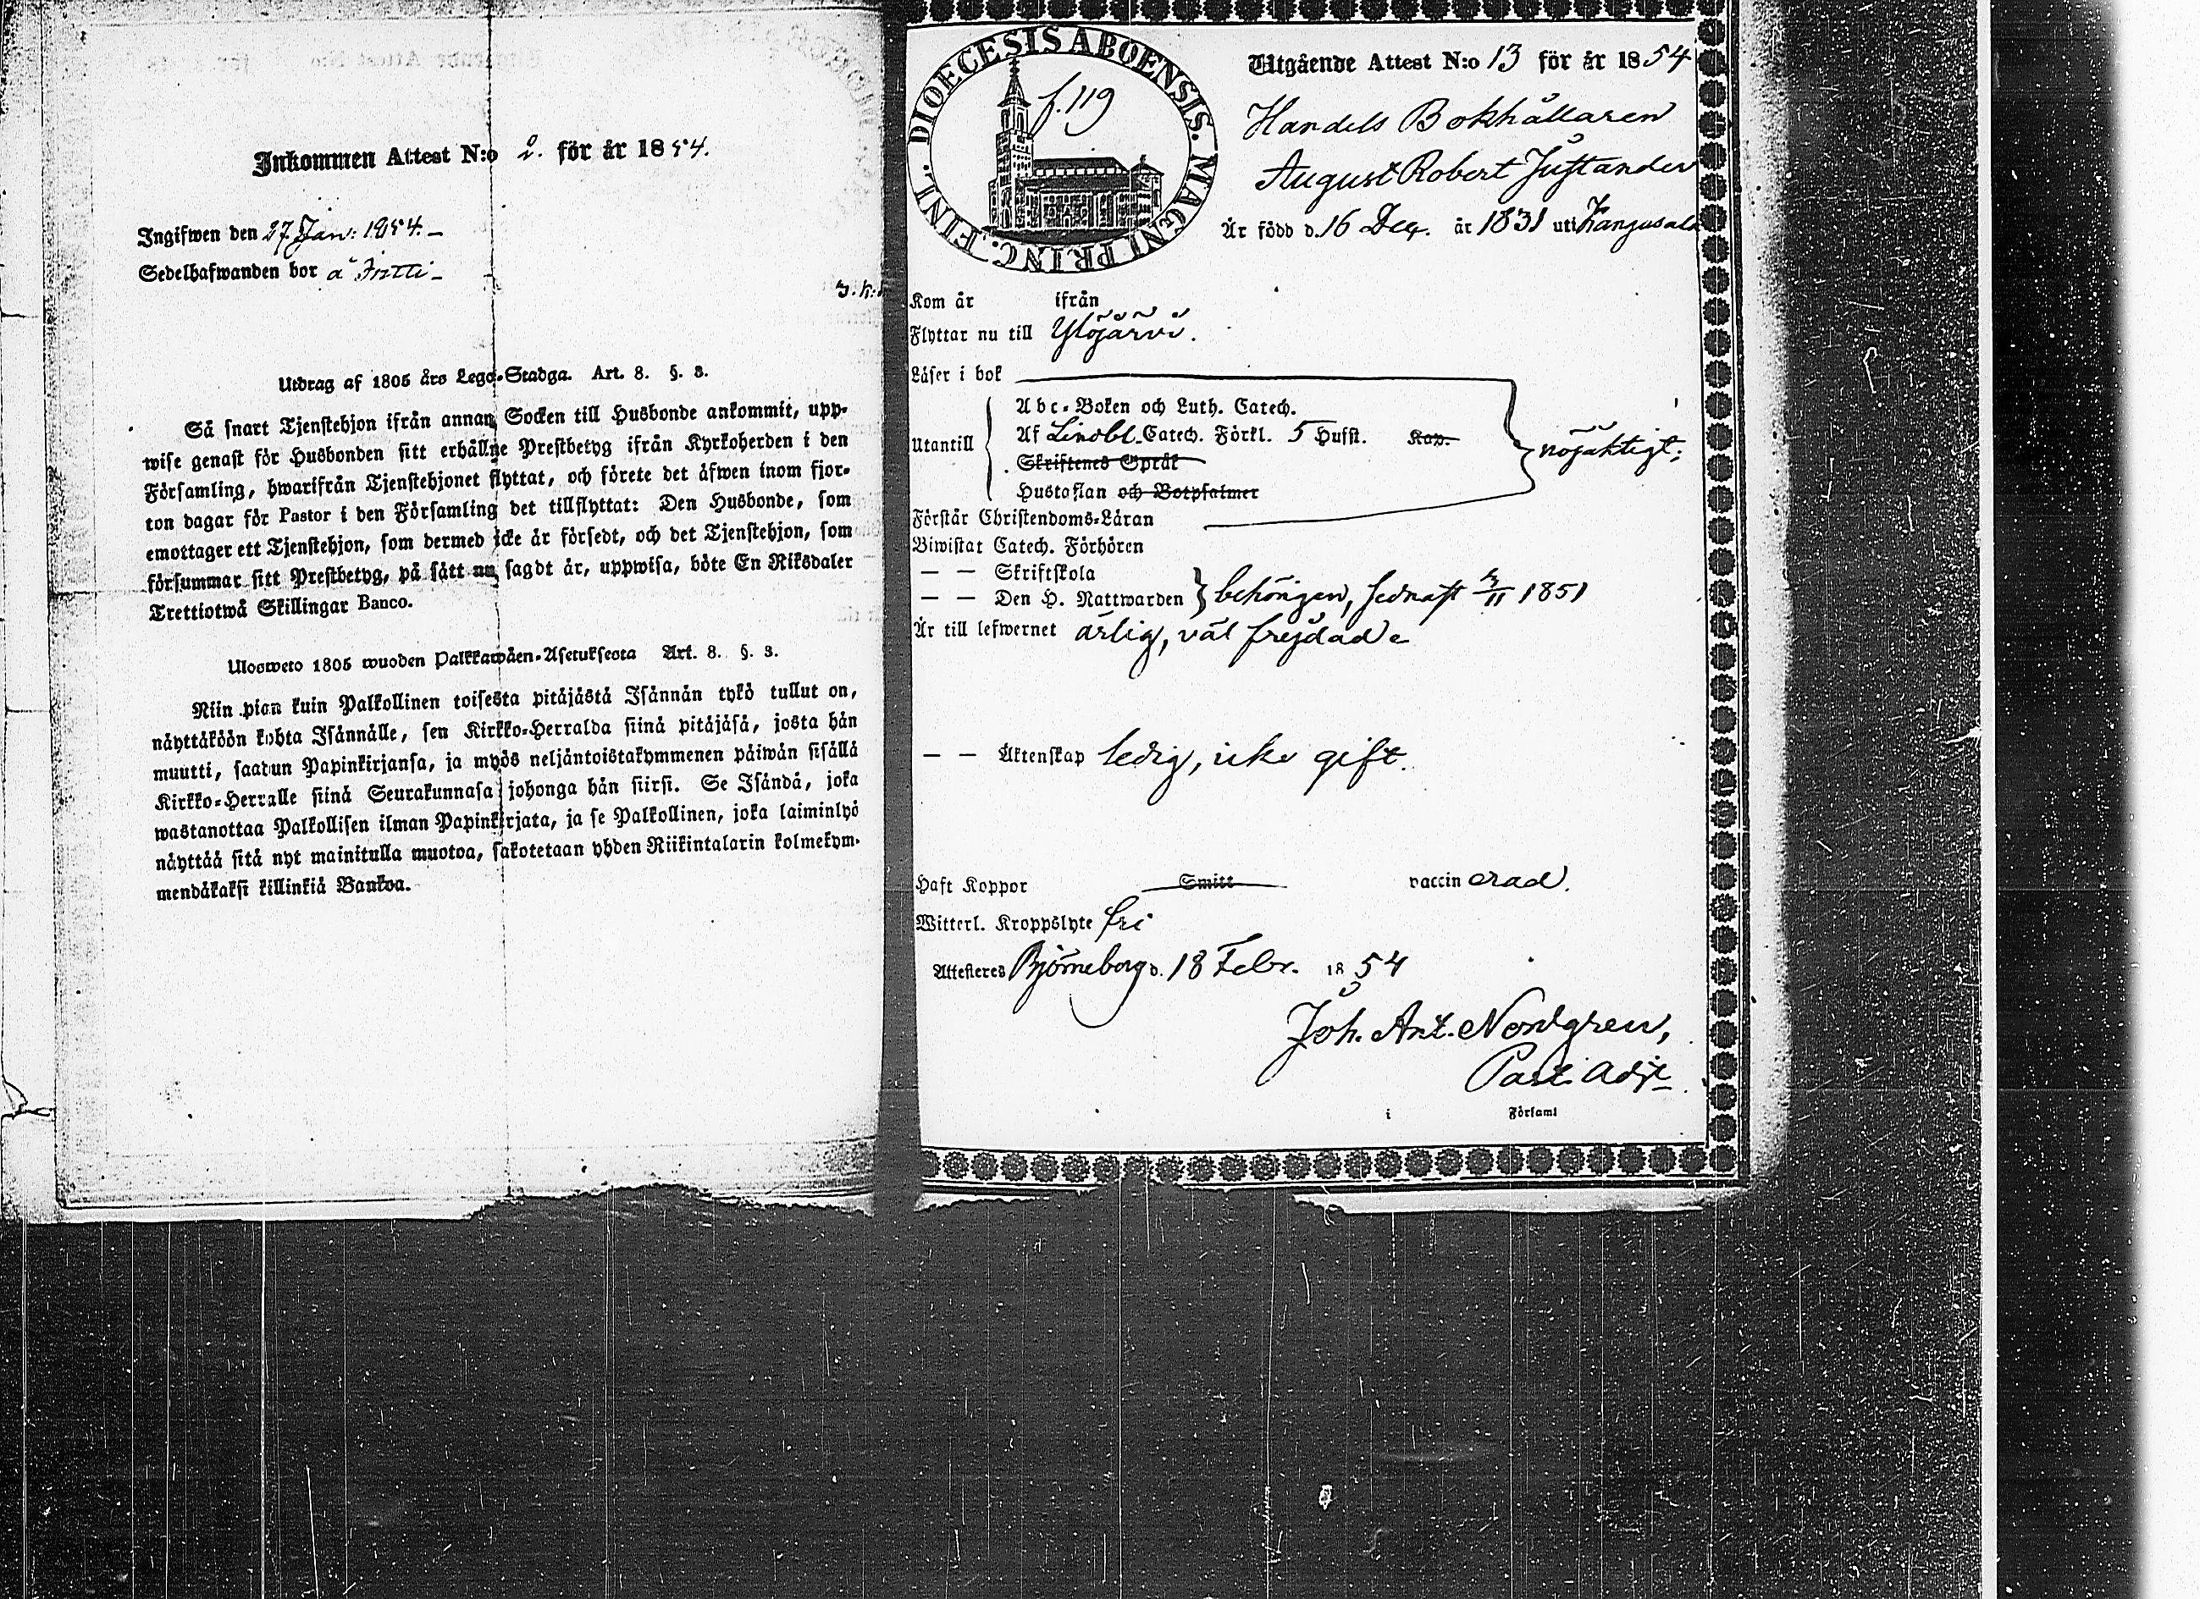 Inkommen Attest N:o 2. för år 1854.
Ingifwen den 27 Jan: 1854.
Sedelhafwanden bor å
Utdrag af 1805 års Lego-Stadga. Art. 8. §. 3.
Så snart Tjenstehjon ifrån annan Socken till Husbonde ankommit, upp-
wise genast för Husbonden sitt erhållne Prestbetyg ifrån Kyrkoherden i den
Församling, hwarifrån Tjenstehjonet flyttat, och förete det äfwen inom fjor-
ton dagar för Pastor i den Församling det tillflyttat: Den Husbonde, som
emottager ett Tjenstehjon, som dermed icke är försedt, och det Tjenstehjon, som
försummar sitt Prestbetyg, på sätt nu sagdt är, uppwisa, böte En Riksdaler
Trettiotwå Skillingar Banco.
Ulosweto 1805 wuoden Palkkawäen-Asetuksesta Art. 8. §. 3.
Niin pian kuin Palkollinen toisesta pitäjästä Isännän tykö tullut on,
näyttäköön kohta Isännälle, sen Kirkko-Herralda siinä pitäjäsä, josta hän
muutti, saadun Papinkirjansa, ja myös neljäntoistakymmenen päiwän sisällä
Kirkko-Herralle siinä Seurakunnasa johonga hän siirsi. Se Isändä, joka
wastanottaa Palkollisen ilman Papinkirjata, ja se Palkollinen, joka laiminlyö
näyttää sitä nyt mainitulla muotoa, sakotetaan yhden Riikintalarin kolmekym-
mendäkaksi killinkiä Bankoa.
DIOECESIS ABOENSIS. MAGNI PRINC. FINL.
f. 119
Utgående Attest N:o 13 för år 1854
Handels Bokhållaren
August Robert Justander
Är född d. 16 Dec. år 1831 uti Kangasala
Kom år ifrån
Flyttar nu till Ylöjärvi.
Läser i bok
Abc-Boken och Luth. Catech.
Utantill Af Lindbl. Catech. Förkl. 5 Hufst. Kap. nöjaktigt;
Skriftenes Språk
Hustaflan och Botpsalmer
Förstår Christendoms-Läran
Biwistat Catech. Förhören
— — Skriftskola
— — Den H. Nattwarden behörigen, sednast 11 1851
Är till lefwernet ärlig, väl frejdad
— — Äktenskap ledig, icke gift.
Haft Koppor Smitt vaccinerad.
Witterl. Kroppslyte fri
Attesteres Björneborg d. 18 Febr. 1854
Joh. Ant. Nordgren,
Past. Adj.
i Församl